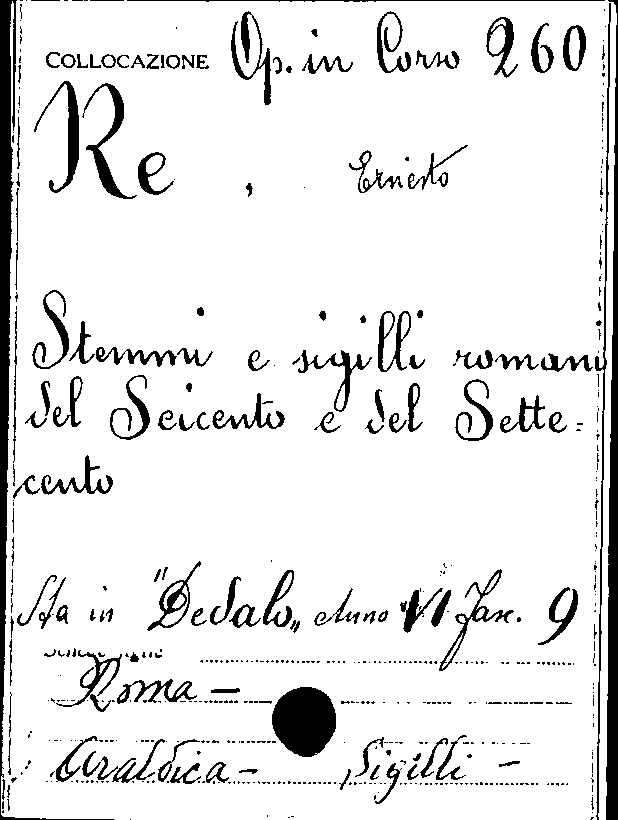 COLLOCAZIONE Op. in Corso 260
Re, Ernesto
Stemmi e sigilli romani
del Seicento e del Sette=
cento
Sta in "Dedalo„ Anno VI Fasc. 9
Roma —
Araldica — Sigilli —